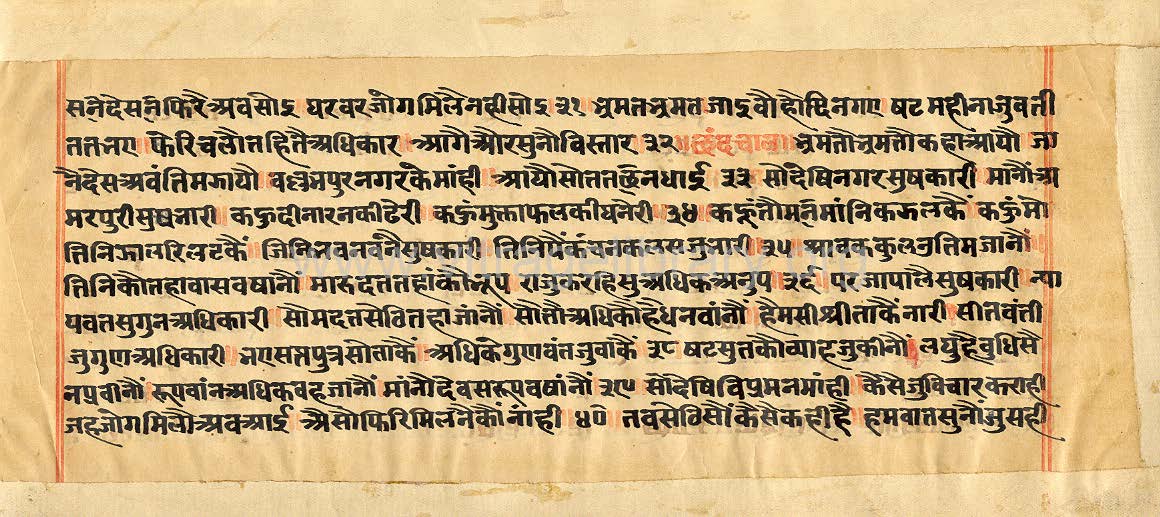 सनैदेसनफिरैअवसोइ घरवरजोगमिलैनहीसोइ ३१ भ्रमतभ्रमतजाइवौहौदिनगए षटमहीनाजुवती
ततभए फेरिचलौतहितैअधिकार आगैऔरसुनौविस्तार ३२ छंदचाल भ्रमतौभ्रमतौकहाआयौ जा
नैदेसअवंतिमझायौ वल्लभपुरनगरकेमांही आयौसोततछिनधाई ३३ सोदेषिनगरसुषकारी मानौंआ
मरपुरीसुषभारी कऊदीनारनकीढेरी कऊंमुक्ताफलकीघनेरी ३४ कऊंतौमनमांनिकझलकैं कऊंमो
तिनिझालरिलटकैं जिनिभवनबनैसुषकारी तिनिपैंकंचनकलसजुभारी ३५ श्रावककुलभुतिमजानौं
तिनिकौतहावासवषानौं मारुदततहांकौभूप राजुकरहिसुअधिकअनुप ३६ परजापालैसुषकारी न्या
यवतसुगुनअधिकारी सोमदत्तसेठितहाजांनौं सोतौअधिकौहैधनवांनौं हैमसीश्रीताकैंनारी सीलवंती
जुगुणअधिकारी भएसप्तपुत्रसोताकैं अधिकेगुणवंतजुवाकैं ३८ षटसुतकौव्याहजुकीनौं लघुहैबुधिसै
नप्रवीनौं रूपवांनअधिकवहजानौं मांनौदेवसरूपवषांनौं ३९ सोदेषिविप्रमनमांही कैसैजुविचारकराही
जहजोगमिलौअवआई औसौफिरिमिलनेकौनांही ४० तवसेठिसौंकैसेकहीहै हमवातसुनौंजुसही